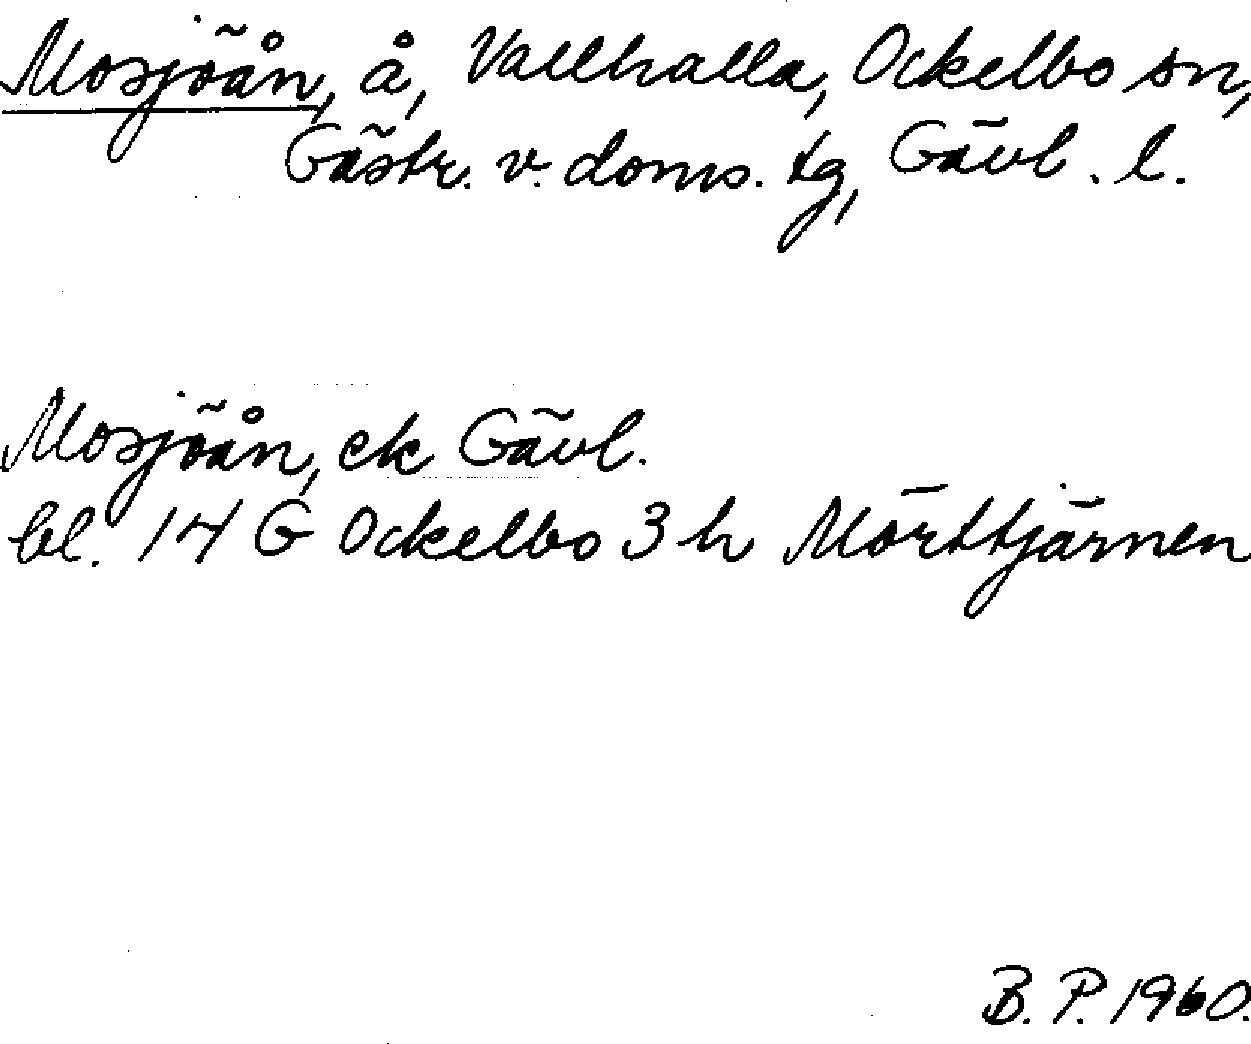 Mosjöån, å, Vallhalla, Ockelbo sn,
Gästr. v. doms. tg, Gävl. l.
Mosjöån, ek Gävl.
bl. 14 G Ockelbo 3 h Mörttjärnen
B. P. 1960.